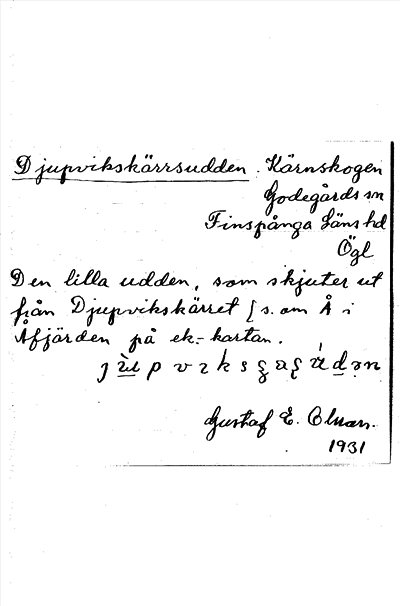 Djupvikskärrsudden. Kärnskogen
Godegårds sn
Finspånga läns hd
Ögl
Den lilla udden, som skjuter ut
från Djupvikskärret [s. om Å i
Åfjärden på ek.-kartan.
Gustaf E. Olsson.
1931